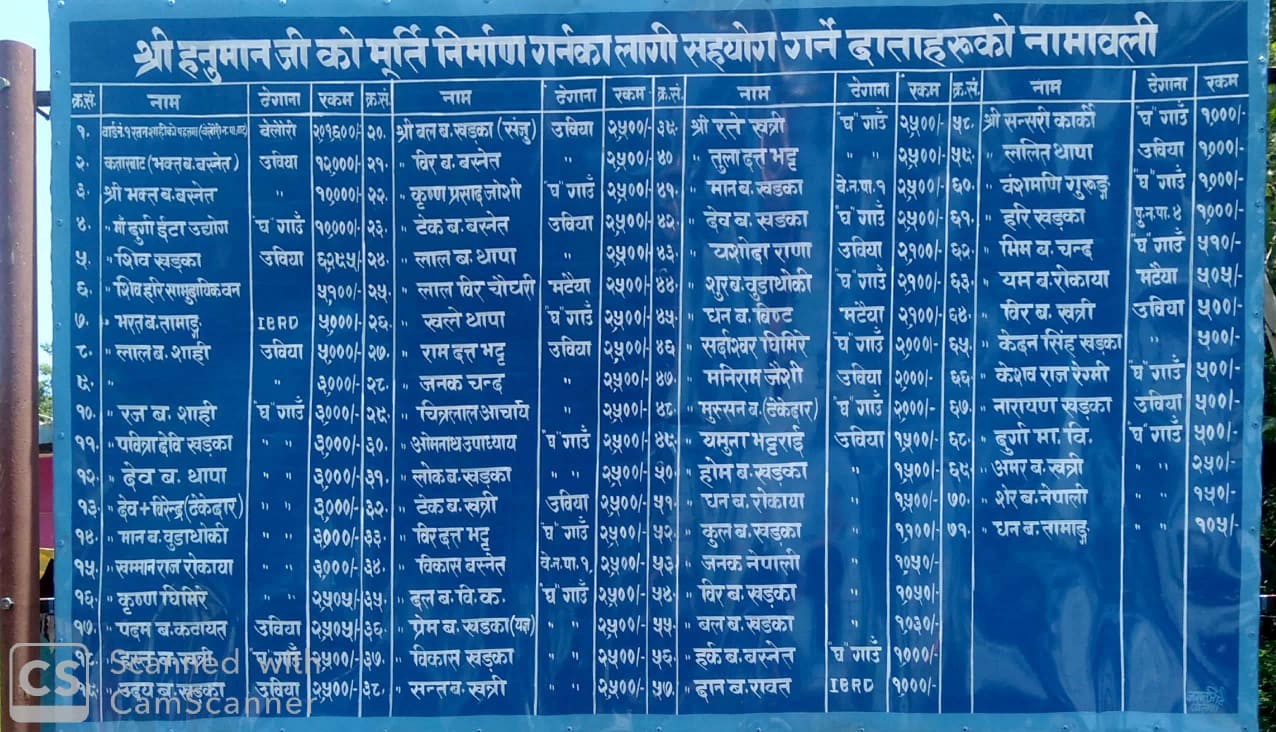 श्री हनुमान जी को मूर्ति निर्माण गर्नका लागी सहयोग गर्ने दाताहरूको नामावली
क्र.सं. नाम ठेगाना रकम
१. वार्ड नं. १ रतन शाहीको पहलमा (बेलौरी न. पा. बाट) बेलौरी २०१६००/-
२. कताखाट (भक्त ब. बस्नेत) उविया १२०००/-
३. श्री भक्त ब. बस्नेत " १००००/-
४. " माँ दुर्गा ईटा उद्योग "घ" गाउँ १००००/-
५. " शिव खड्का उविया ६२८५/-
६. " शिव हरि सामुदायिक वन ५१००/-
७. " भरत ब. तामाङ्ग IBRD ५०००/-
८. " लाल ब. शाही उविया ५०००/-
९. " " ३०००/-
१०. " रज ब. शाही "घ" गाउँ ३०००/-
११. " पवित्रा देवि खड्का " " ३०००/-
१२. " देव ब. थापा " " ३०००/-
१३. " देव + विरेन्द्र (ठेकेदार) " " ३०००/-
१४. " मान ब. वुडाथोकी " " ३०००/-
१५. " खम्मान राज रोकाया " " ३०००/-
१६. " कृष्ण घिमिरे " " २५०५/-
१७. " पदम ब. कठायत उविया २५०५/-
१८. "घ" गाउँ २५००/-
१९. " उदय ब. खड्का उविया २५००/-
क्र.सं. नाम ठेगाना रकम
२०. श्री बल ब. खड्का (संजु) उविया २५००/-
२१. " विर ब. बस्नेत " २५००/-
२२. " कृष्ण प्रसाद जोशी "घ" गाउँ २५००/-
२३. " टेक ब. बस्नेत उविया २५००/-
२४. " लाल ब. थापा " २५००/-
२५. " लाल विर चौधरी मटैया २५००/-
२६. " खले थापा "घ" गाउँ २५००/-
२७. " राम दत्त भट्ट उविया २५००/-
२८. " जनक चन्द " २५००/-
२९. " चित्रलाल आचार्य " २५००/-
३०. " ओमनाथ उपाध्याय "घ" गाउँ २५००/-
३१. " लोक ब. खड्का " " २५००/-
३२. " टेक ब. खत्री उविया २५००/-
३३. " विर दत्त भट्ट "घ" गाउँ २५००/-
३४. " विकास बस्नेत वे. न. पा. १, २५००/-
३५. " दल ब. वि. क. "घ" गाउँ २५००/-
३६. " प्रेम ब. खड्का (यज्ञ) " " २५००/-
३७. " विकास खड्का " " २५००/-
३८. " सन्त ब. खत्री " " २५००/-
क्र.सं. नाम ठेगाना रकम
३९. श्री रत्ने खत्री "घ" गाउँ २५००/-
४० " तुला दत्त भट्ट " " २५००/-
४१. " मान ब. खड्का वे. न. पा. १ २५००/-
४२. " देव ब. खड्का "घ" गाउँ २५००/-
४३. " यशोदा राणा उविया २१००/-
४४. " शुर ब. वुडाथोकी "घ" गाउँ २१००/-
४५. " धन ब. विष्ट मटैया २१००/-
४६. " सर्दाश्वर घिमिरे "घ" गाउँ २०००/-
४७. " मनिराम जैशी उविया २०००/-
४८. " मुस्सन ब. (ठेकेदार) "घ" गाउँ २०००/-
४९. " यमुना भट्टराई उविया १५००/-
५०. " होम ब. खड्का " १५००/-
५१. " धन ब. रोकाया " १५००/-
५२. " कुल ब. खड्का " ११००/-
५३. " जनक नेपाली " १०५०/-
५४. " विर ब. खड्का " १०५०/-
५५. " बल ब. खड्का " १०३०/-
५६. " हर्क ब. बस्नेत "घ" गाउँ १०००/-
५७. " दान ब. रावत IBRD १०००/-
क्र.सं. नाम ठेगाना रकम
५८. श्री सन्सरी कार्की "घ" गाउँ १०००/-
५९. " ललित थापा उविया १०००/-
६०. " वंशमणि गुरुङ्ग "घ" गाउँ १०००/-
६१. " हरि खड्का पु. न. पा. ४ १०००/-
६२. " भिम ब. चन्द "घ" गाउँ ५१०/-
६३. " यम ब. रोकाया मटैया ५०५/-
६४. " विर ब. खत्री उविया ५००/-
६५. " केदन सिंह खड्का " ५००/-
६६. " केशव राज रेग्मी "घ" गाउँ ५००/-
६७. " नारायण खड्का उविया ५००/-
६८. " दुर्गा मा. वि. "घ" गाउँ ५००/-
६९. " अमर ब. खत्री " " २५०/-
७०. " शेर ब. नेपाली " " १५०/-
७१. " धन ब. तामाङ्ग " " १०५/-
CS Scanned with
CamScanner